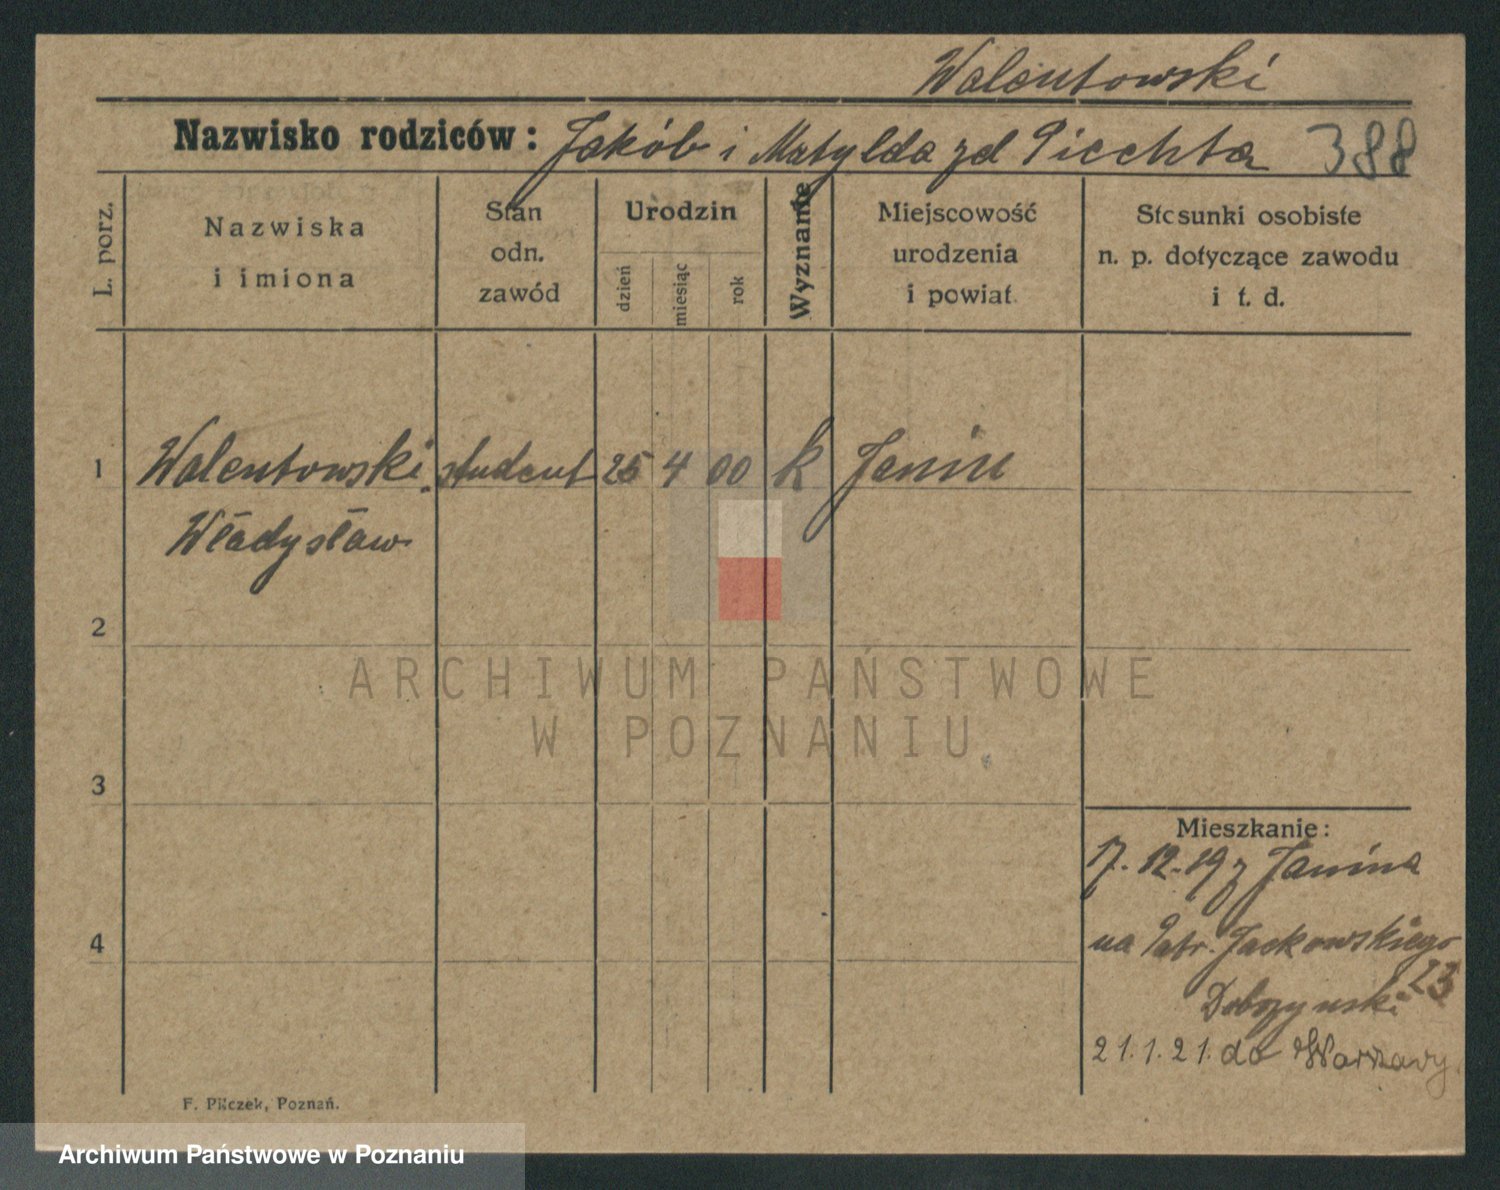 Walentowski
Nazwisko rodziców: Jakób i Matylda zd Piechta 388
L. porz.
Nazwiska
i imiona
Stan
odn.
zawód
Urodzin
dzień
miesiąc
rok
Wyznanie
Miejscowość
urodzenia
i powiat
Stosunki osobiste
n. p. dotyczące zawodu
i t. d.
1 Walentowski student 25 4 00 k Janin
Władysław
2
3
4
Mieszkanie:
17.12.19 z Janina
na Patr. Jackowskiego
23
Dobrzynski
21.1.21. do Warszawy.
F. Pilczek, Poznań.
ARCHIWUM PAŃSTWOWE
W POZNANIU
Archiwum Państwowe w Poznaniu